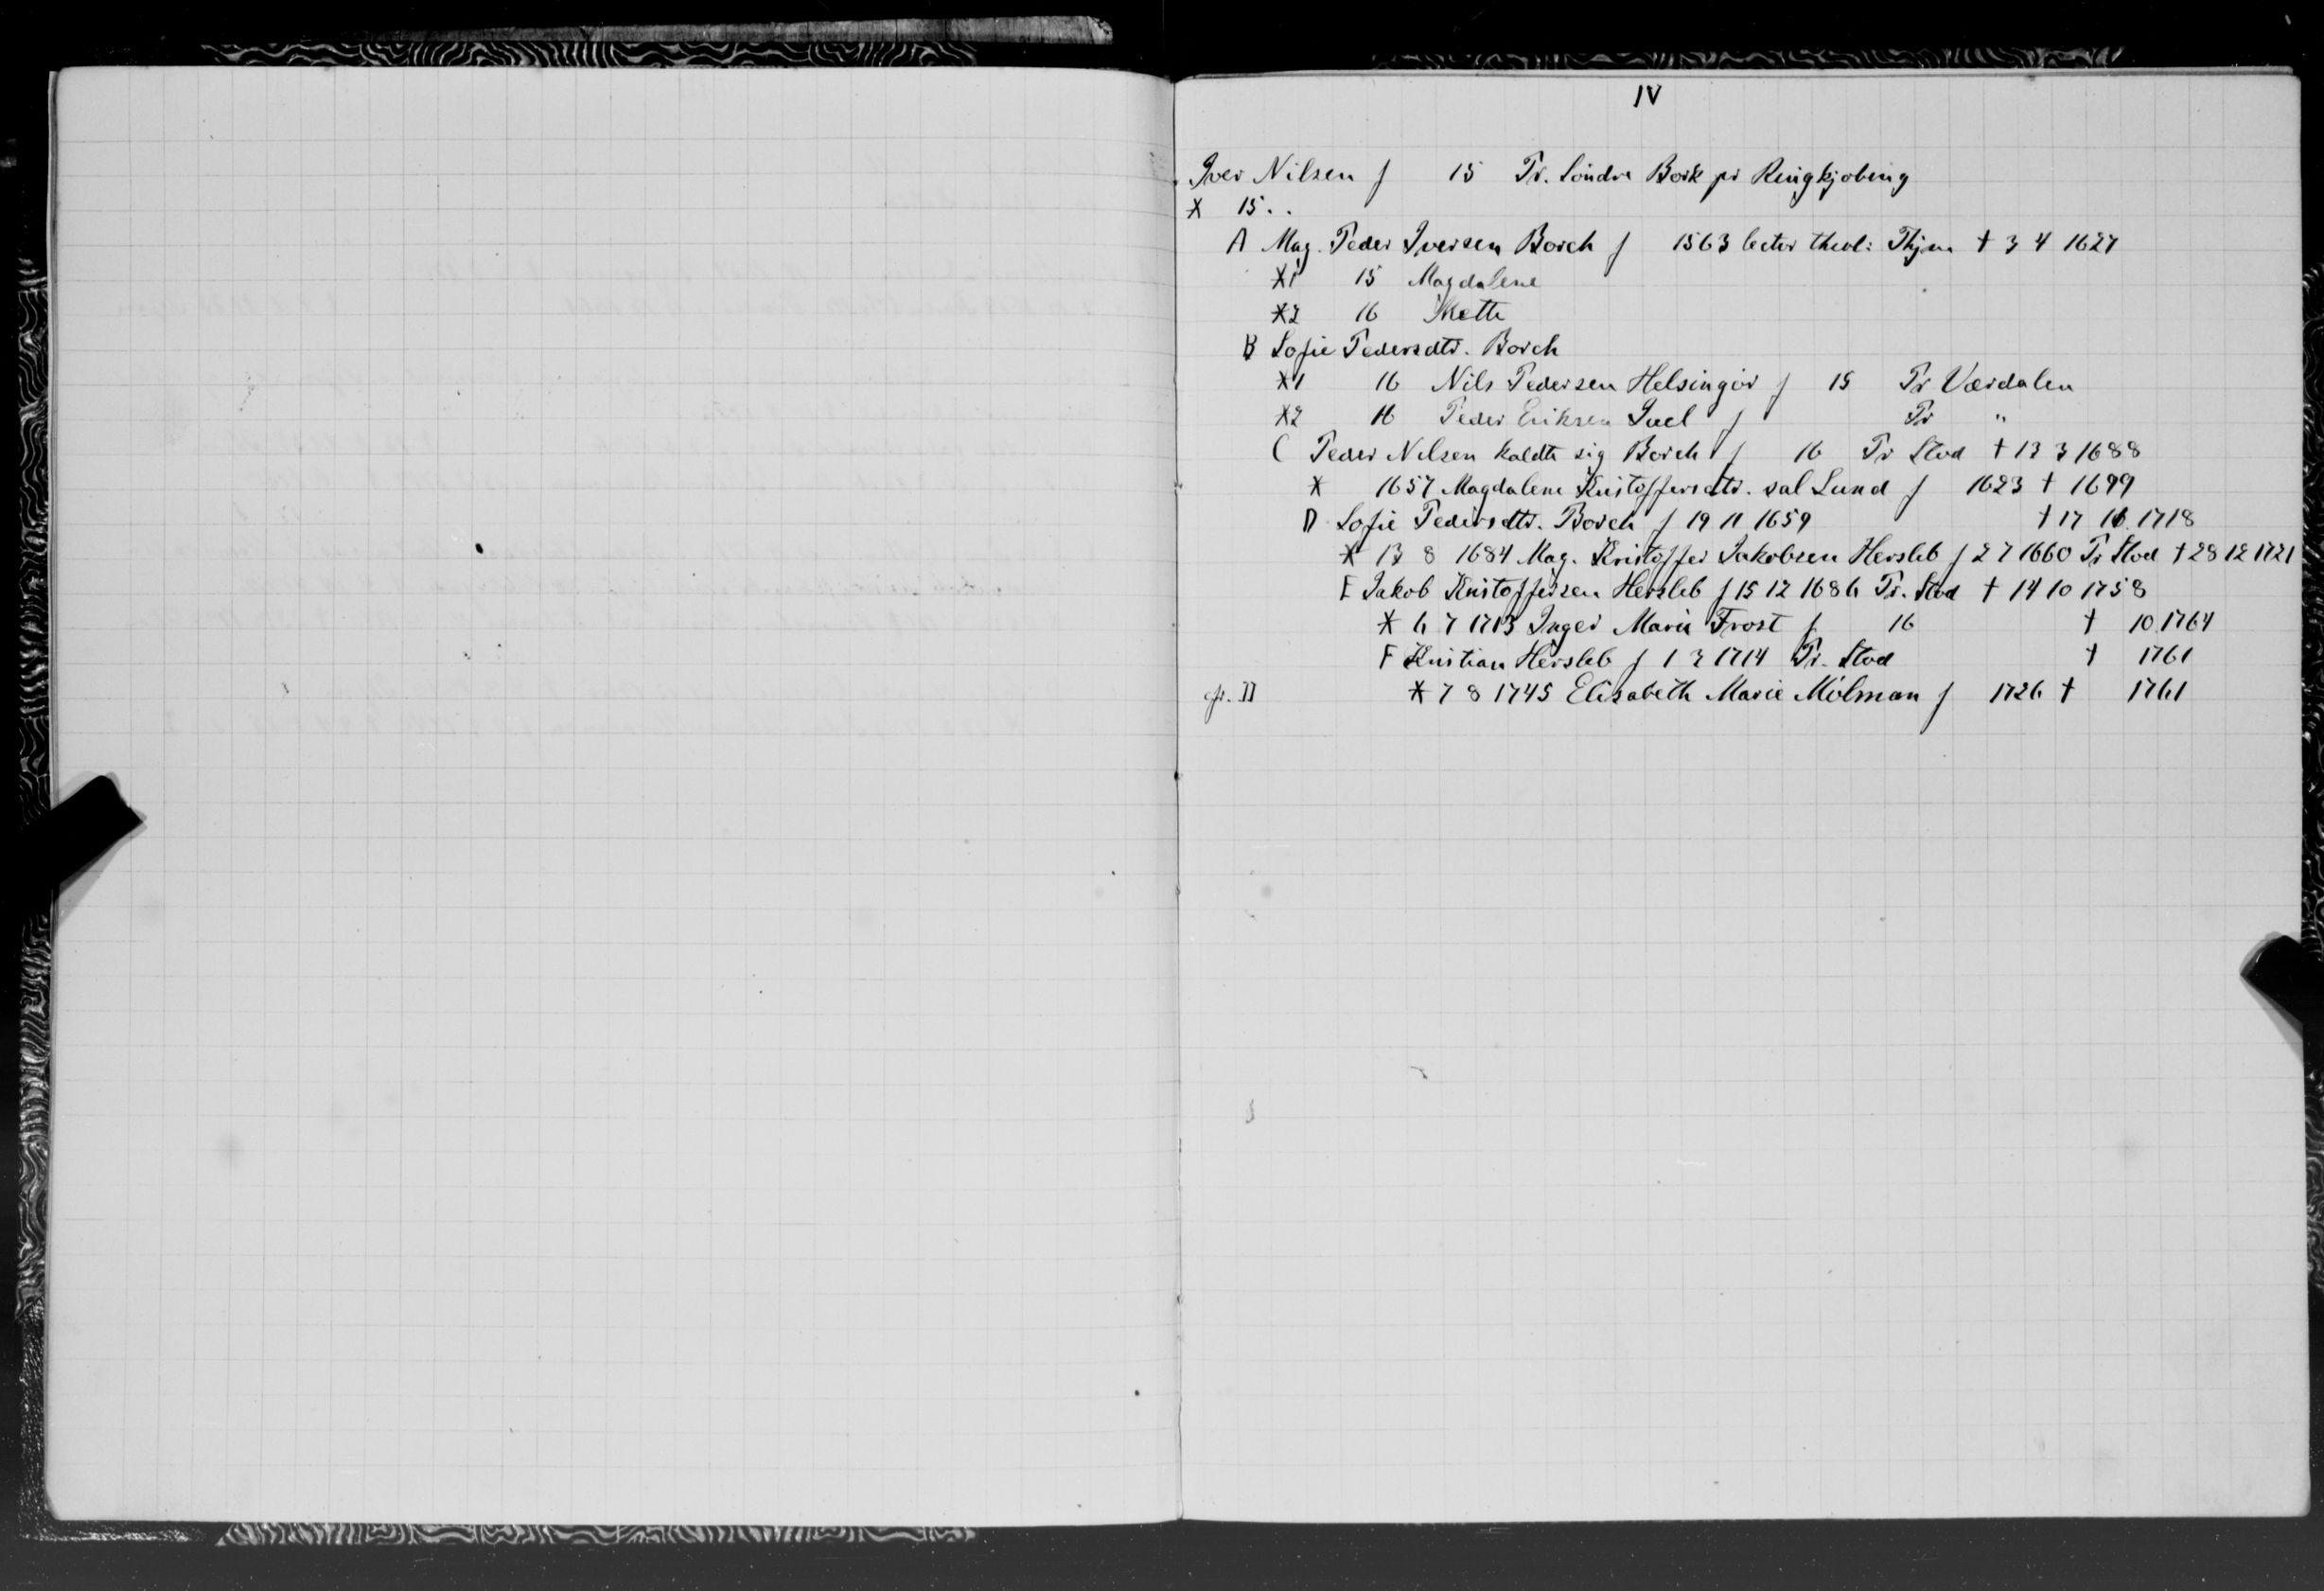 IV
Iver Nilsen f 15 Pr. Söndre Bork pr Ringkjobing
X 15..
A Mag. Peder Iversen Borch f 1563 lector theol: Thjm † 3 4 1627
X1 15 Magdalene
X2 16 Mette
B Sofie Pedersdtr. Borch
X1 16 Nils Pedersen Helsingör f 15 Pr Værdalen
X2 16 Peder Eriksen Juel f Pr "
C Peder Nilsen kaldte sig Borch f 16 Pr Stod † 13 3 1688
X 1657 Magdalene Kristoffersdtr. sal Lund f 1623 † 1699
D Sofie Pedersdtr. Borch f 19 11 1659 † 17 1718
X 13 8 1684 Mag. Kristoffer Jakobsen Hersleb f 2 7 1660 Pr Stod † 28 12 1721
E Jakob Kristoffersen Hersleb f 15 12 1686 Pr. Stod † 14 10 1758
X 6 7 1713 Inger Marie Frost f 16 † 10 1764
F Kristian Hersleb f 1 3 1714 Pr. Stod † 1761
cfr. II X 7 8 1745 Elisabeth Marie Mölman f 1726 † 1761